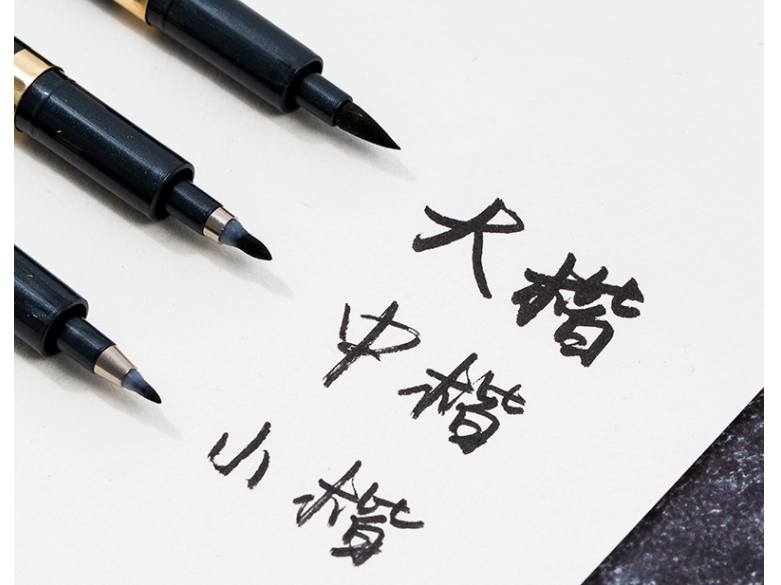 大楷
中楷
小楷